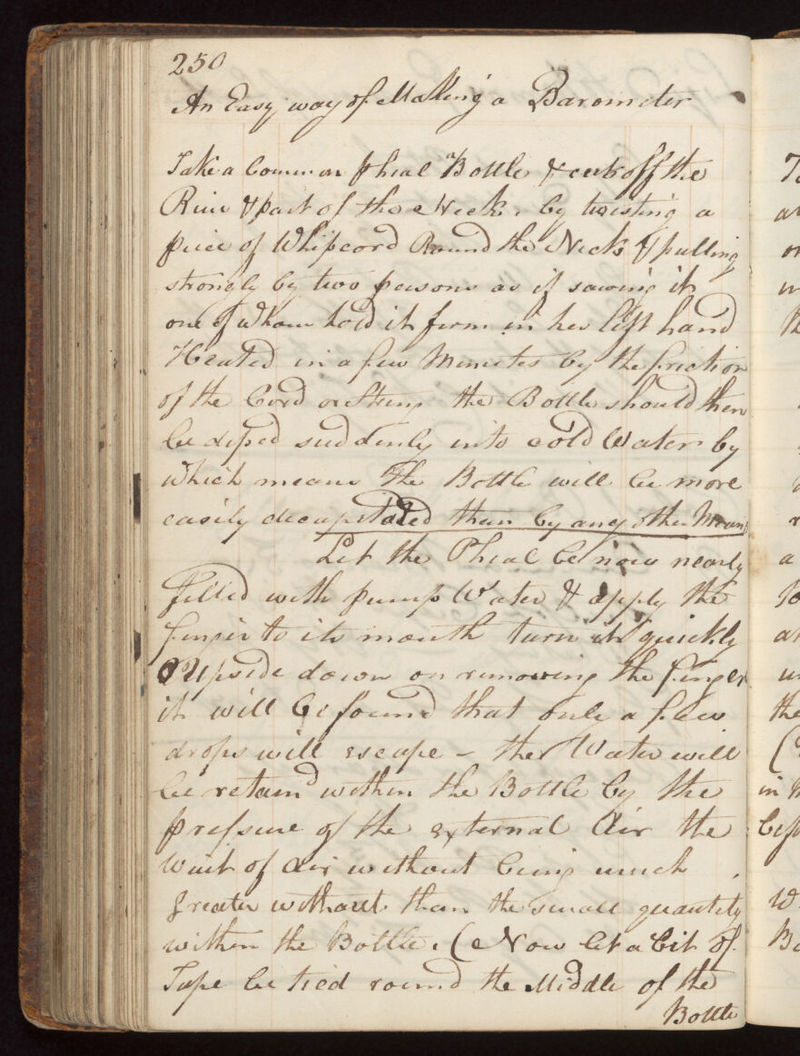 250
An Easy way of Making a Barometer
Take a Common phial Bottle & cut off the
Rim & part of the Neck, by twisting a
piece of Whipcord Round the Neck & pulling
strongly by two persons as if sawing it
one of Whom hold it firm in her left hand
Heated in a few Minutes by the friction
of the Cord or String the Bottle should then
be diped suddenly into cold Water by
which means the Bottle will be more
easily decapitated than by any other Means
Let the Phial be now nearly
filled with pump Water & apply the
finger to its mouth turn it quickly
Upside down on removing the finger
it will be found that only a few
drops will escape – the Water will
be retaind within the Bottle by the
pressure of the external Air the
Wait of air without being much
Greater without than the small quantity
within the Bottle. (Now let a Bit of
Tape be tied round the Middle of the
Bottle